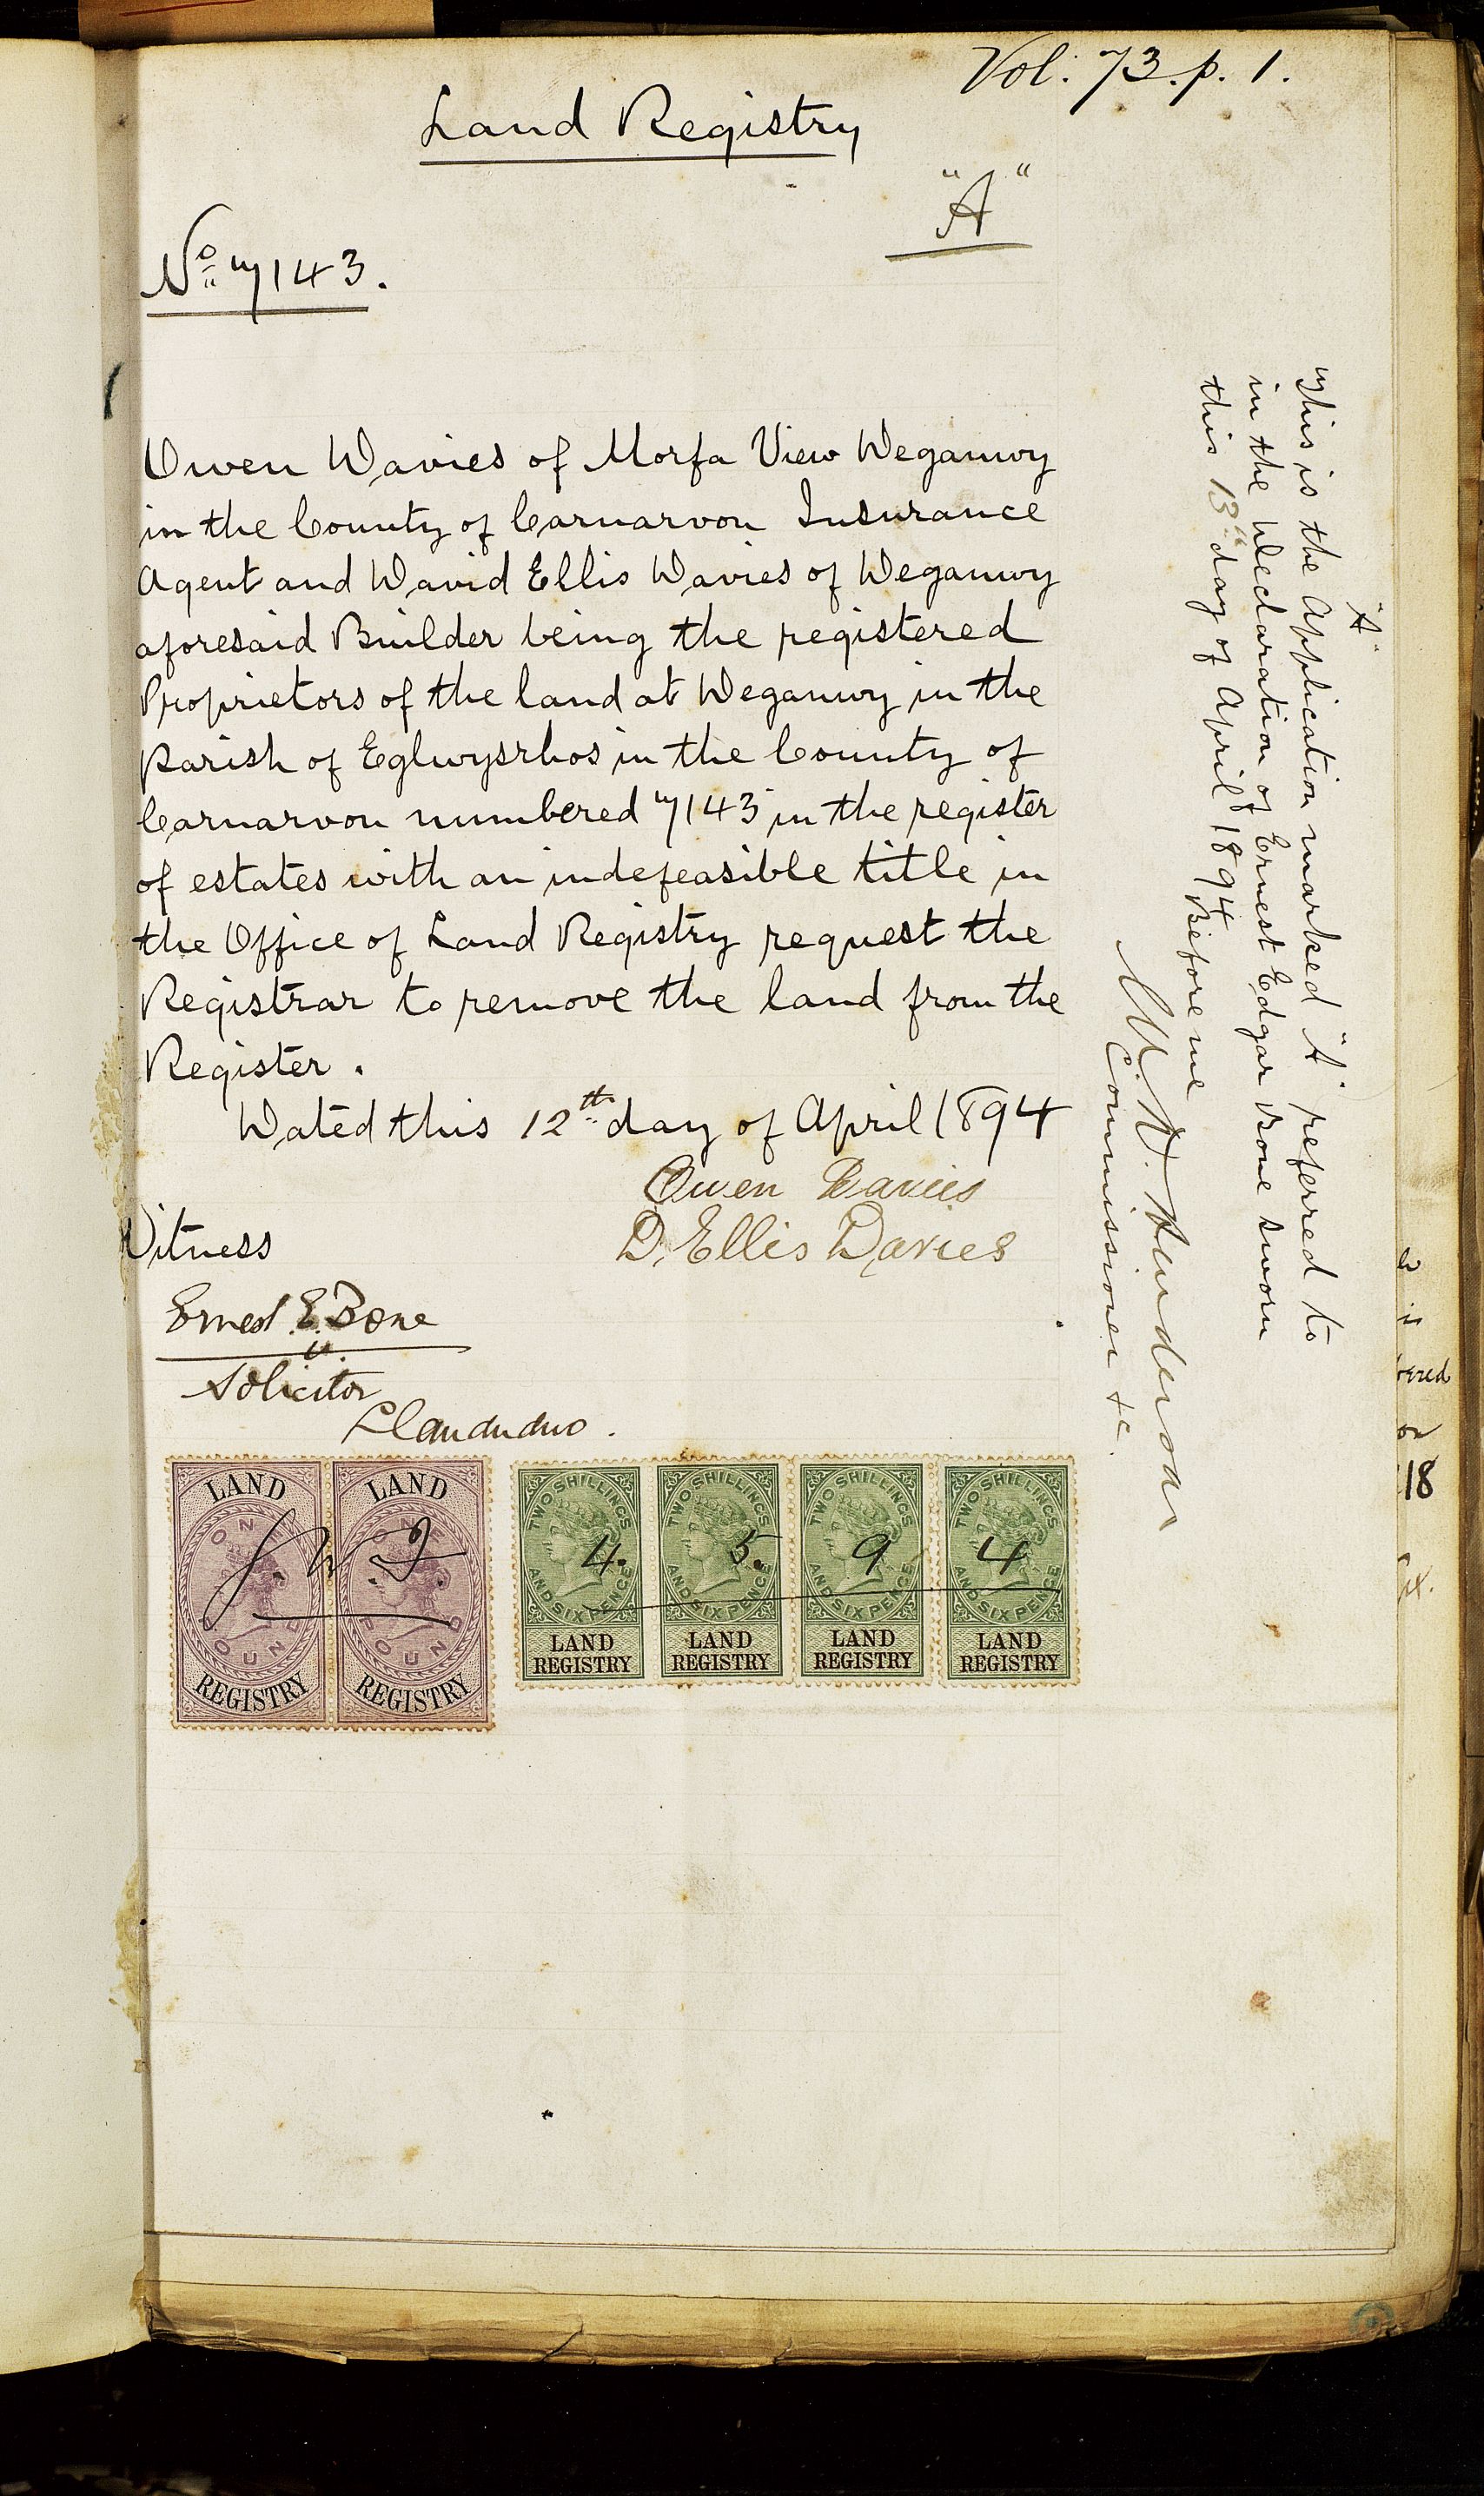 Vol. 73. p. 1.
Land Registry
"A"
No 7143.
Owen Davies of Morfa View Deganwy
in the County of Carnarvon Insurance
Agent and David Ellis Davies of Deganwy
aforesaid Builder being the registered
Proprietors of the land at Deganwy in the
Parish of Eglwysrhos in the County of
Carnarvon numbered 7143 in the register
of estates with an indefeasible title in
the Office of Land Registry request the
Registrar to remove the land from the
Register.
Dated this 12th day of April 1894
Owen Davies
D. Ellis Davies
Witness
Ernest E. Bone
Solicitor
Llandudno.
"A"
This is the Application marked "A" referred to
in the Declaration of Ernest Edgar Bone sworn
this 13th day of April 1894 Before me
Henderson
Commissioner &c.
LAND ONE POUND REGISTRY
LAND ONE POUND REGISTRY
TWO SHILLINGS AND SIX PENCE LAND REGISTRY
TWO SHILLINGS AND SIX PENCE LAND REGISTRY
TWO SHILLINGS AND SIX PENCE LAND REGISTRY
TWO SHILLINGS AND SIX PENCE LAND REGISTRY
4. 5. 9 4
is
on
18